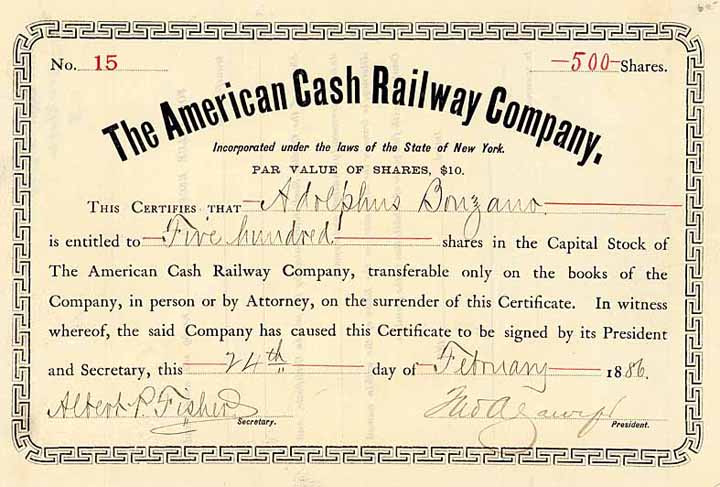 No. 15 —500— Shares.
The American Cash Railway Company.
Incorporated under the laws of the State of New York.
PAR VALUE OF SHARES, $10.
THIS CERTIFIES THAT Adolphus Bonzano
is entitled to Five hundred shares in the Capital Stock of
The American Cash Railway Company, transferable only on the books of the
Company, in person or by Attorney, on the surrender of this Certificate. In witness
whereof, the said Company has caused this Certificate to be signed by its President
and Secretary, this 24th day of February 1886.
Albert P. Fisher
Secretary. President.